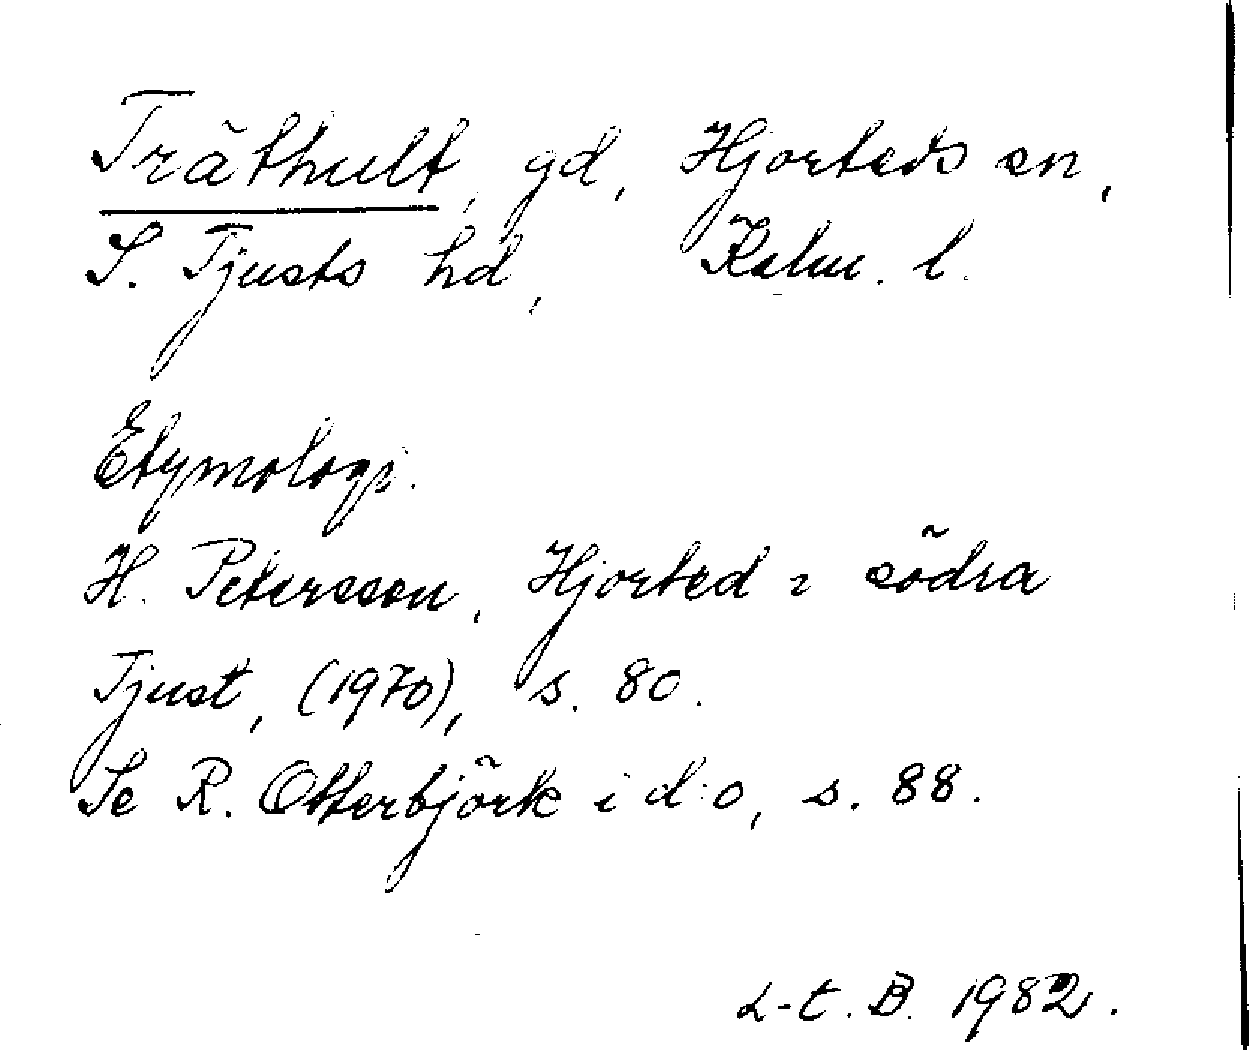 Träthult, gd, Hjorteds sn,
S. Tjusts hd, Kalm. l.
Etymologi.
H. Petersson, Hjorted i södra
Tjust, (1970), s. 80.
Se R. Otterbjörk i d:o, s. 88.
L-t. B. 1982.